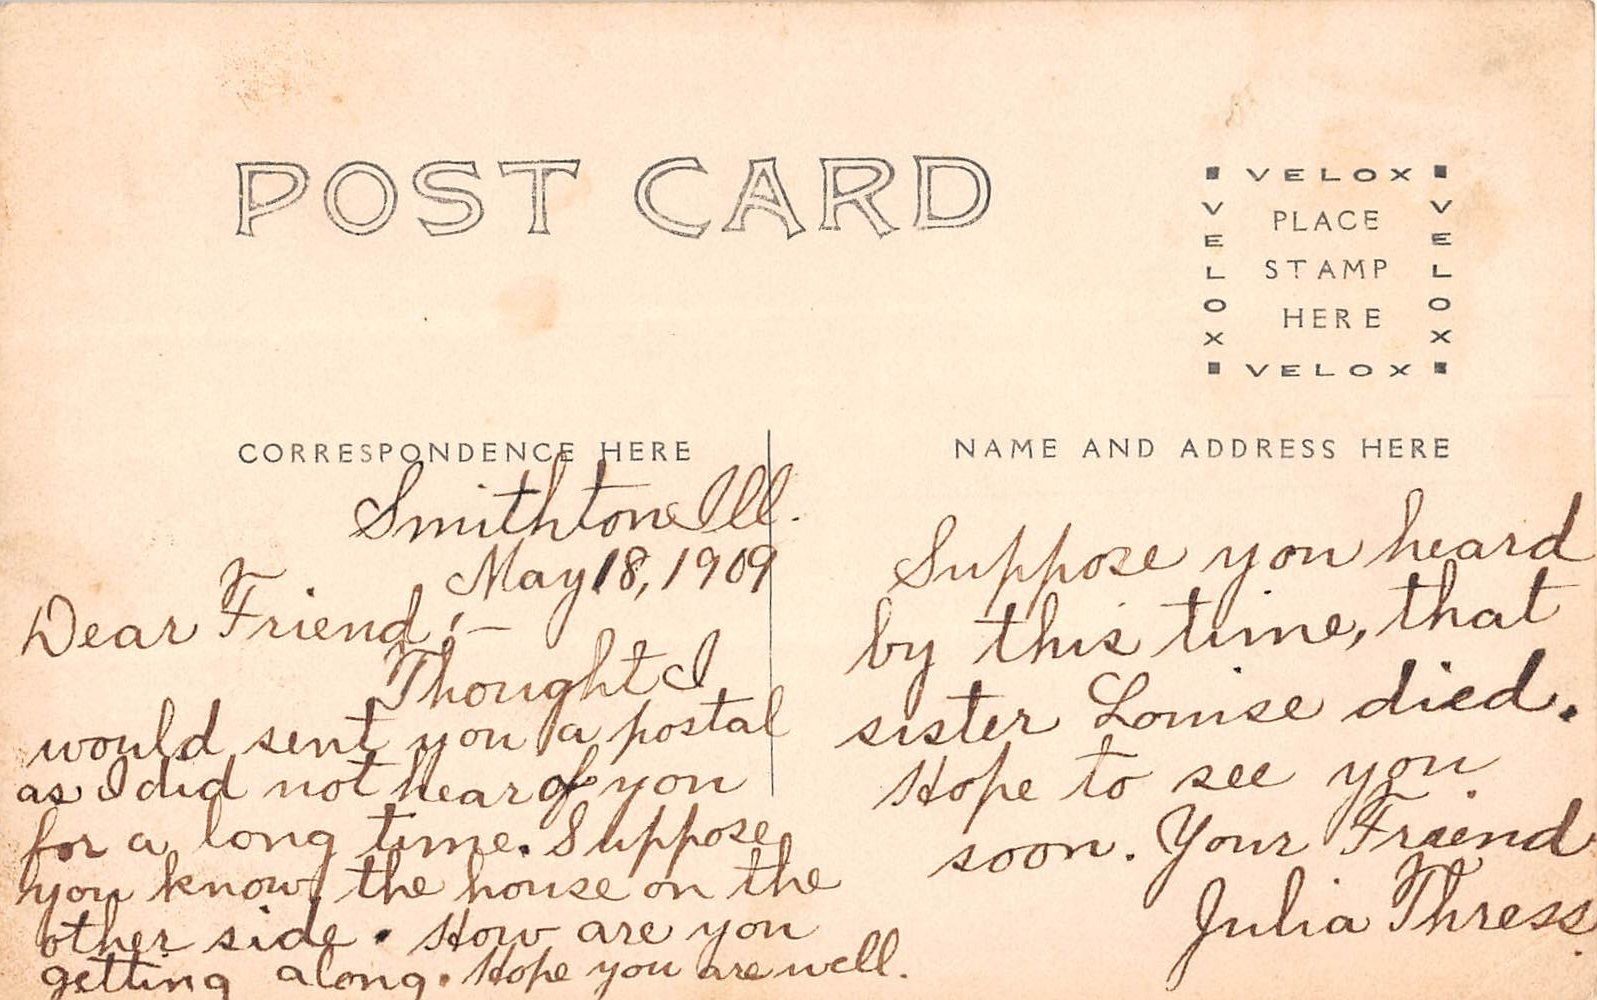 POST CARD
VELOX
VELOX
VELOX
PLACE
STAMP
HERE
VELOX
CORRESPONDENCE HERE
NAME AND ADDRESS HERE
Smithton Ill.
May 18, 1909
Dear Friend,:—
Thought I
would sent you a postal
as I did not hear of you
for a long time. Suppose
you know the house on the
other side. How are you
getting along. Hope you are well.
Suppose you heard
by this time, that
sister Louise died.
Hope to see you
soon. Your Friend
Julia Thress.